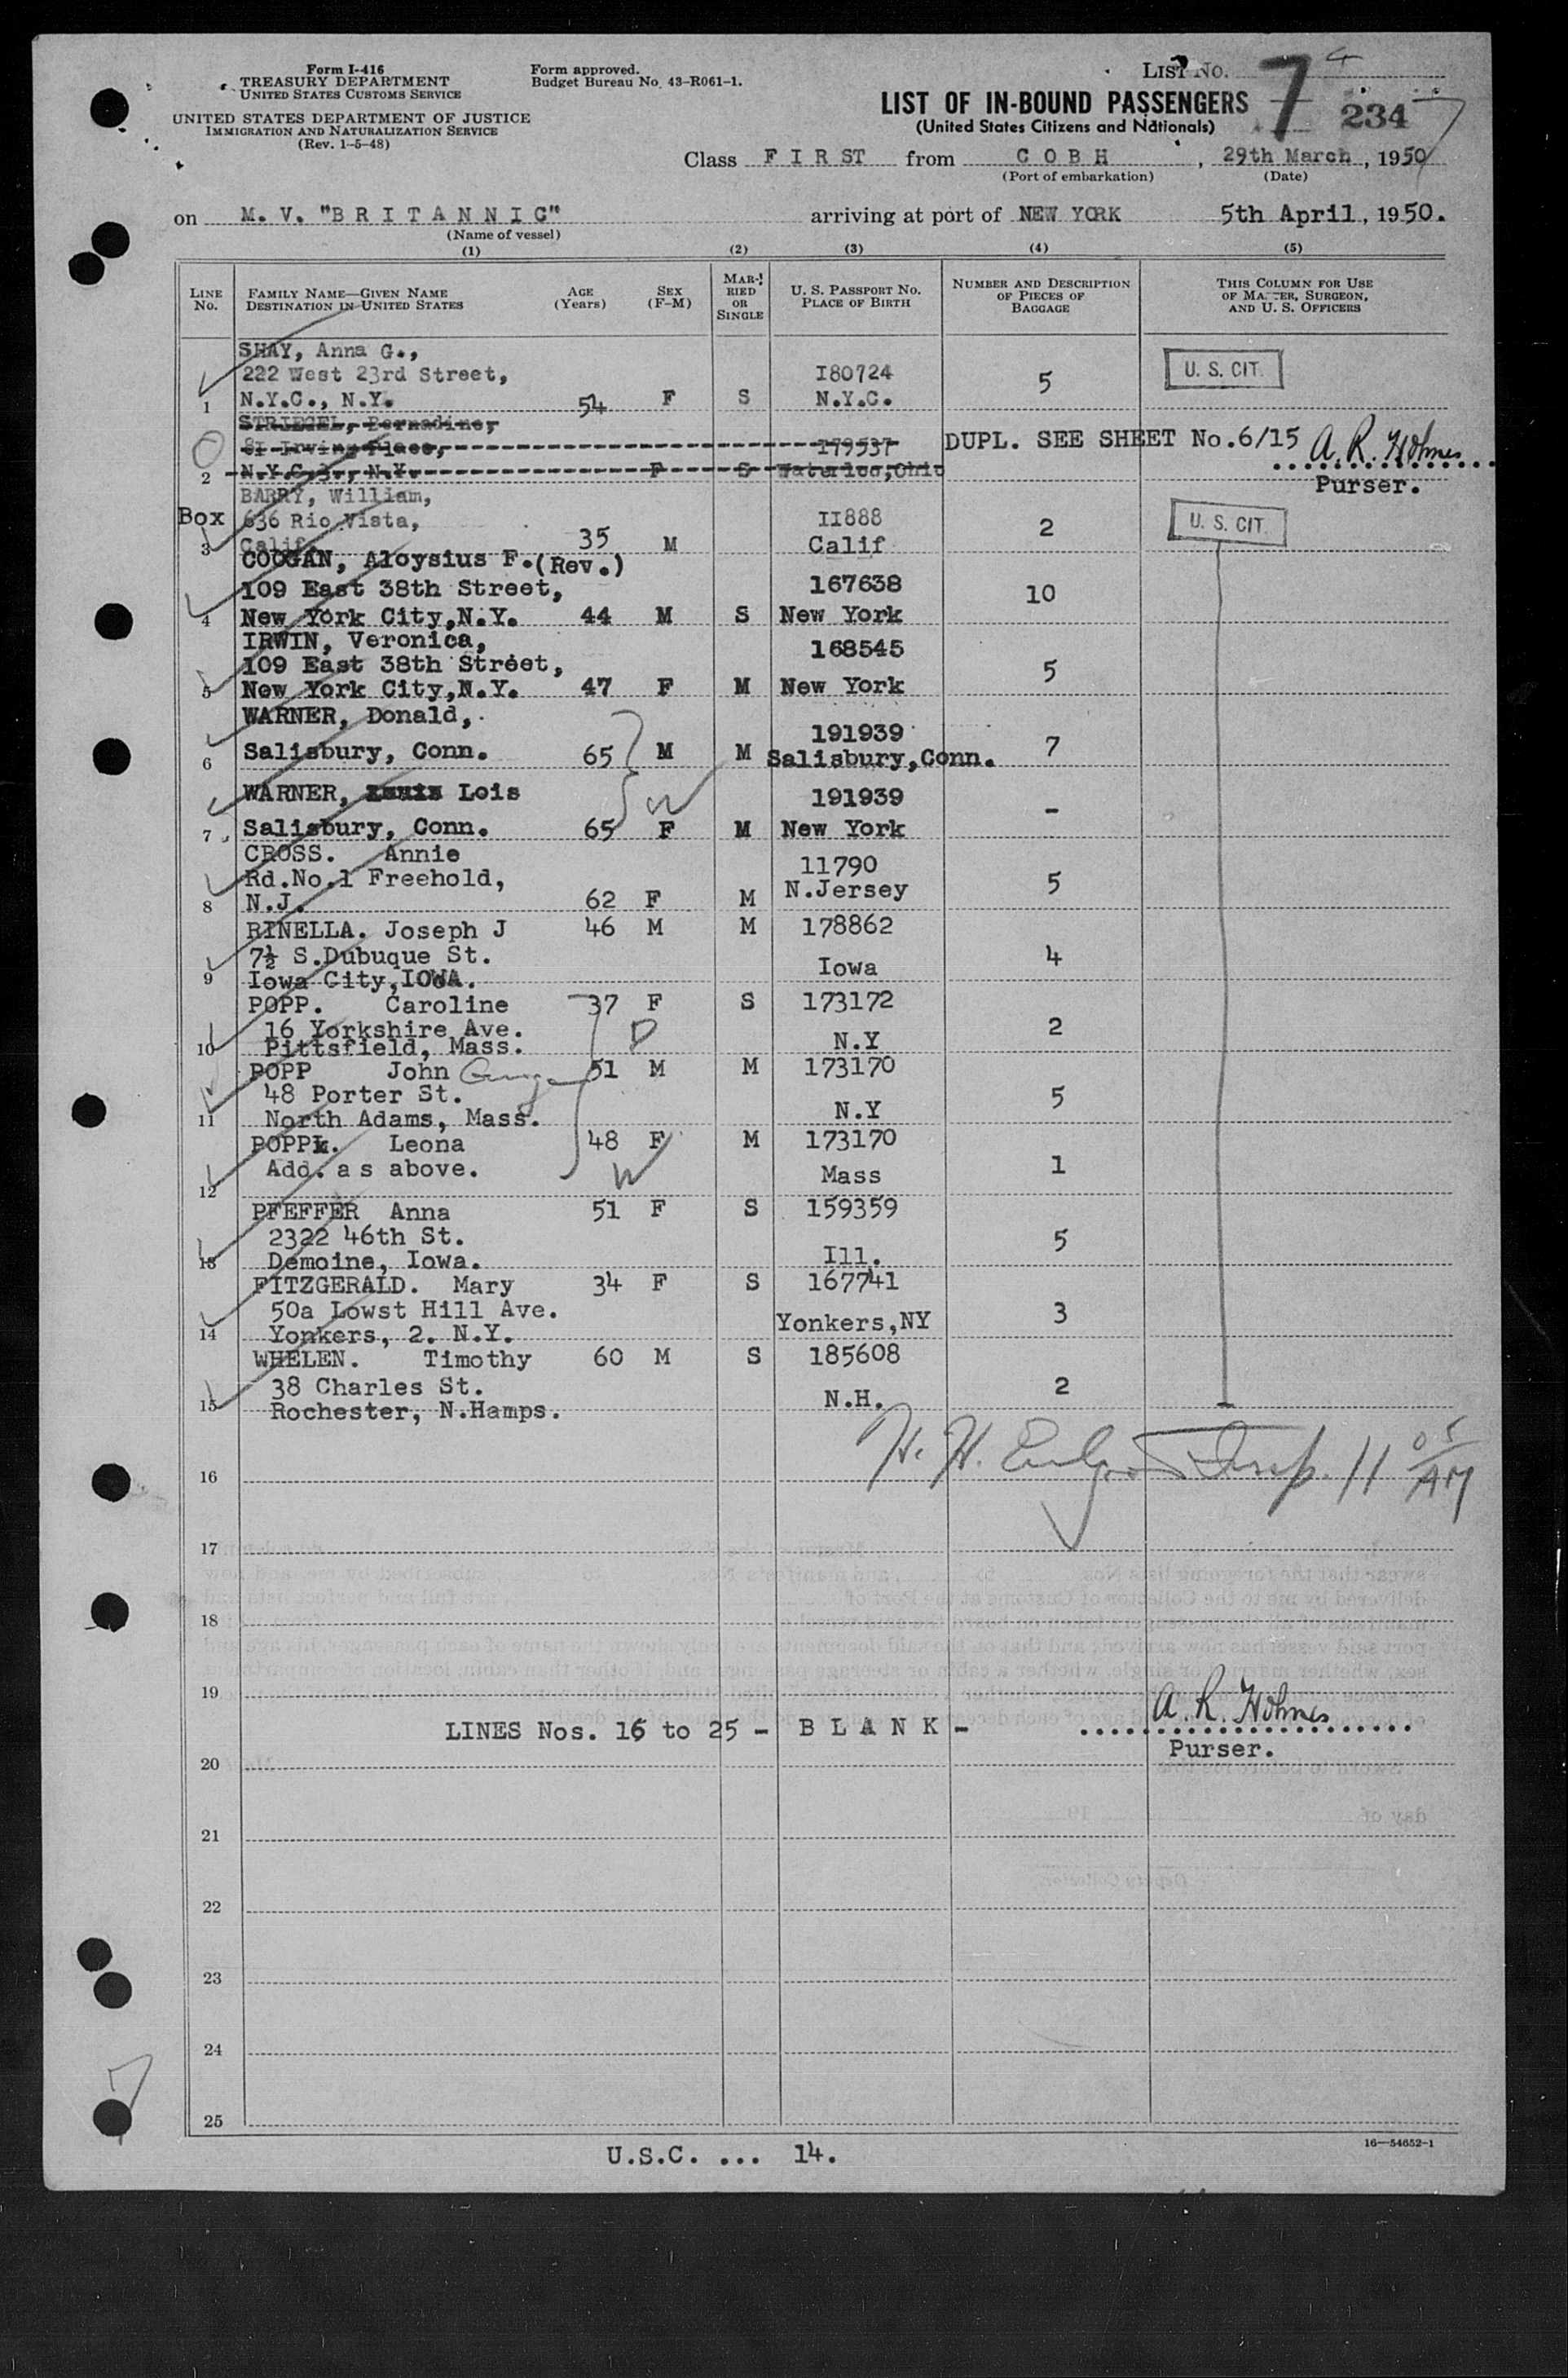 Form I-416
TREASURY DEPARTMENT
UNITED STATES CUSTOMS SERVICE
UNITED STATES DEPARTMENT OF JUSTICE
IMMIGRATION AND NATURALIZATION SERVICE
(Rev. 1-5-48)
Form approved.
Budget Bureau No. 43-R061-1.
LIST No. 7
234
LIST OF IN-BOUND PASSENGERS
(United States Citizens and Nationals)
Class F I R S T from C O B H , 29th March , 1950
(Port of embarkation) (Date)
on M. V. "B R I T A N N I C" arriving at port of NEW YORK 5th April , 1950.
(Name of vessel)
(1) (2) (3) (4) (5)
LINE No. FAMILY NAME—GIVEN NAME DESTINATION IN UNITED STATES AGE (Years) SEX (F-M) MARRIED OR SINGLE U. S. PASSPORT No. PLACE OF BIRTH NUMBER AND DESCRIPTION OF PIECES OF BAGGAGE THIS COLUMN FOR USE OF MASTER, SURGEON, AND U. S. OFFICERS
SHAY, Anna G.,
222 West 23rd Street, I80724 5 U. S. CIT.
1 N.Y.C., N.Y. 54 F S N.Y.C.
STRIEGEL, Bernadine,
8I Irving Place, 179537 DUPL. SEE SHEET No.6/15 A. R. Holmes
2 N.Y.C.3., N.Y. F S Waterloo,Ohio Purser.
BARRY, William,
Box 636 Rio Vista, II888 2 U. S. CIT.
3 Calif. 35 M Calif
COOGAN, Aloysius F.(Rev.)
109 East 38th Street, 167638 10
4 New York City,N.Y. 44 M S New York
IRWIN, Veronica, 168545
109 East 38th Street, 5
5 New York City,N.Y. 47 F M New York
WARNER, Donald, 191939
6 Salisbury, Conn. 65 M M Salisbury,Conn. 7
WARNER, Lois 191939 -
7 Salisbury, Conn. 65 F M New York
W
CROSS. Annie 11790
Rd.No.1 Freehold, N.Jersey 5
8 N.J. 62 F M
RINELLA. Joseph J 46 M M 178862
7½ S.Dubuque St. 4
9 Iowa City,IOWA. Iowa
POPP. Caroline 37 F S 173172
16 Yorkshire Ave. D 2
10 Pittsfield, Mass. N.Y
POPP John 51 M M 173170
48 Porter St. 5
11 North Adams, Mass. N.Y
POPP. Leona 48 F M 173170
Add. a s above. W Mass 1
12
PFEFFER Anna 51 F S 159359
2322 46th St. 5
13 Demoine, Iowa. Ill.
FITZGERALD. Mary 34 F S 167741
50a Lowst Hill Ave. Yonkers,NY 3
14 Yonkers, 2. N.Y.
WHELEN. Timothy 60 M S 185608
38 Charles St. 2
15 Rochester, N.Hamps. N.H.
H. H. Insp. 11 05 AM
16
17
18
19
LINES Nos. 16 to 25 - B L A N K - A. R. Holmes
Purser.
20
21
22
23
24
25
7
16—54652-1
U.S.C. ... 14.